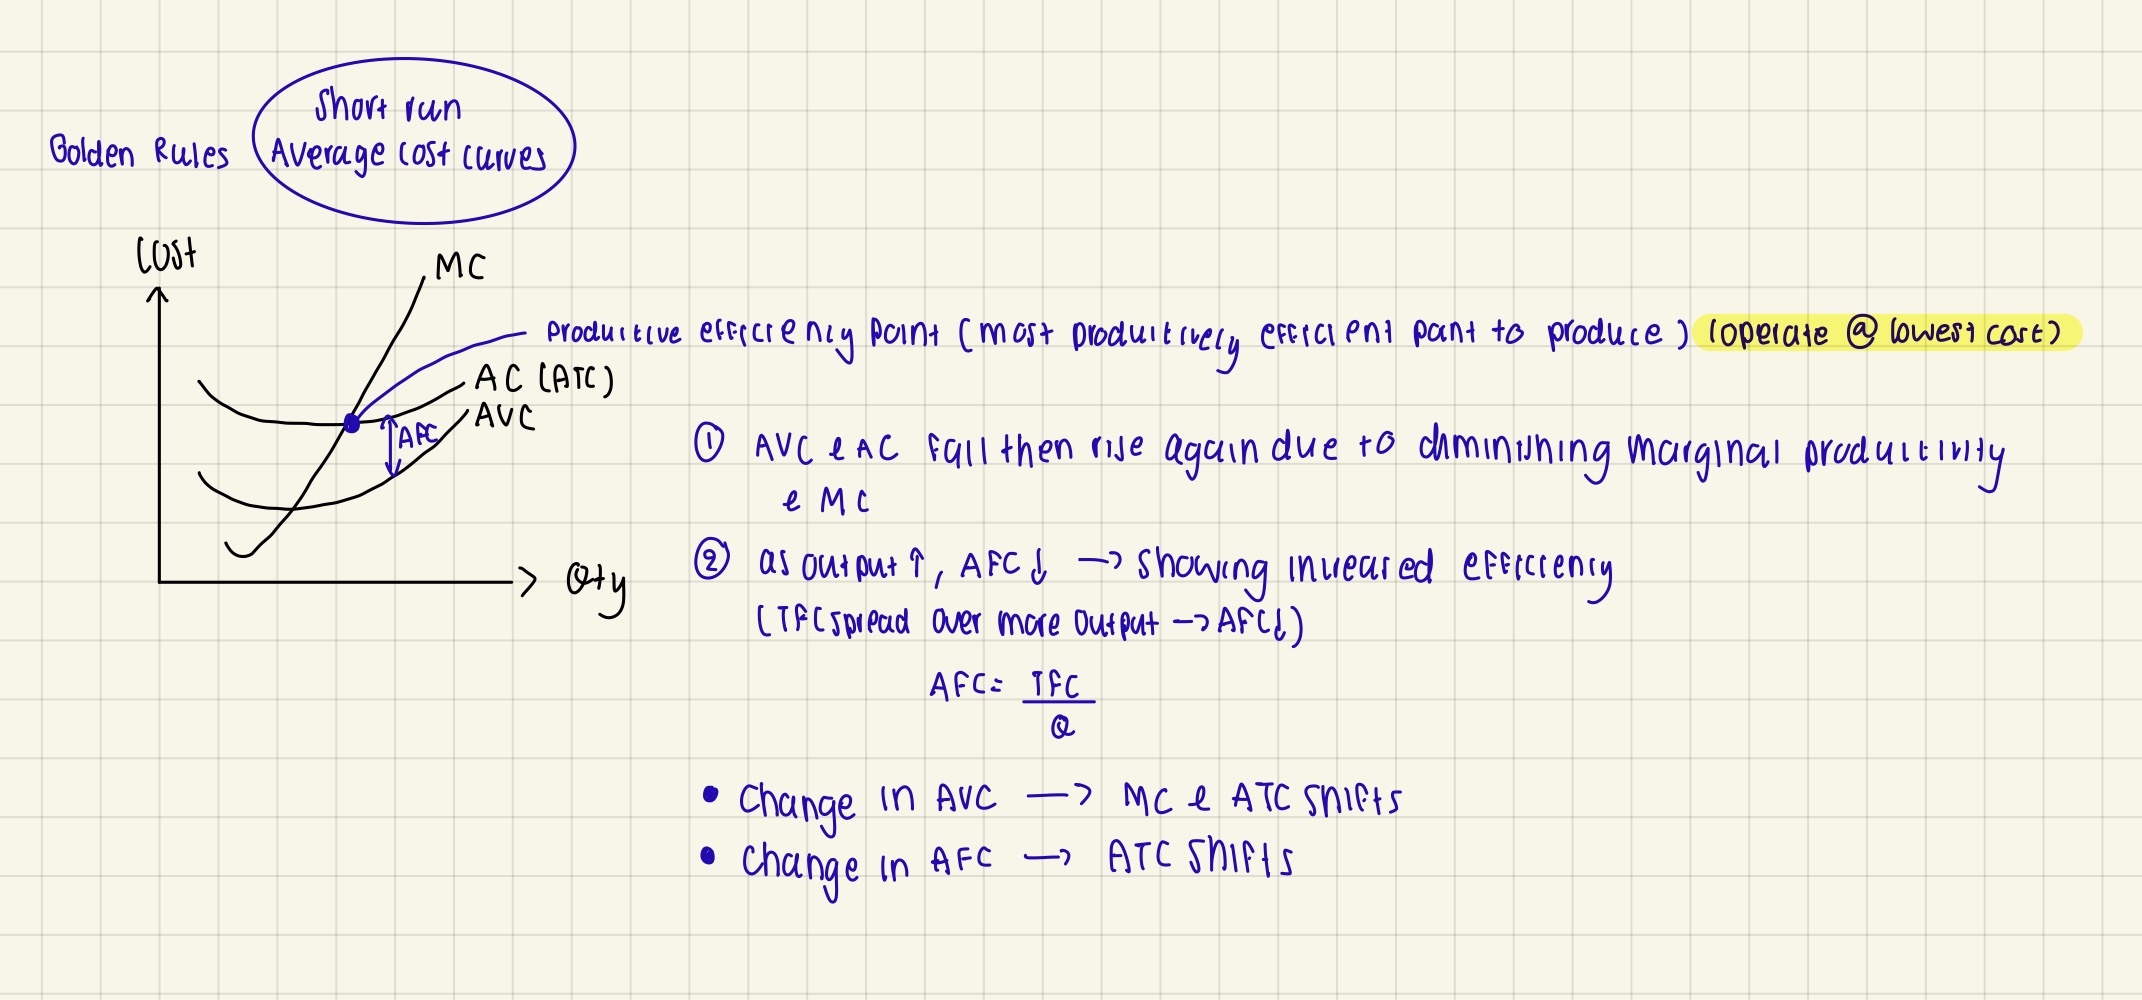 Short run
Golden Rules Average cost curves
Cost
MC
Productive efficiency point (most productively efficient point to produce) (operate @ lowest cost)
AC (ATC)
AVC
AFC
① AVC & AC fall then rise again due to diminishing marginal productivity
& MC
② as output ↑, AFC ↓ → showing increased efficiency
Qty
(TFC spread over more output → AFC ↓)
AFC = TFC
Q
• Change in AVC → MC & ATC shifts
• Change in AFC → ATC shifts